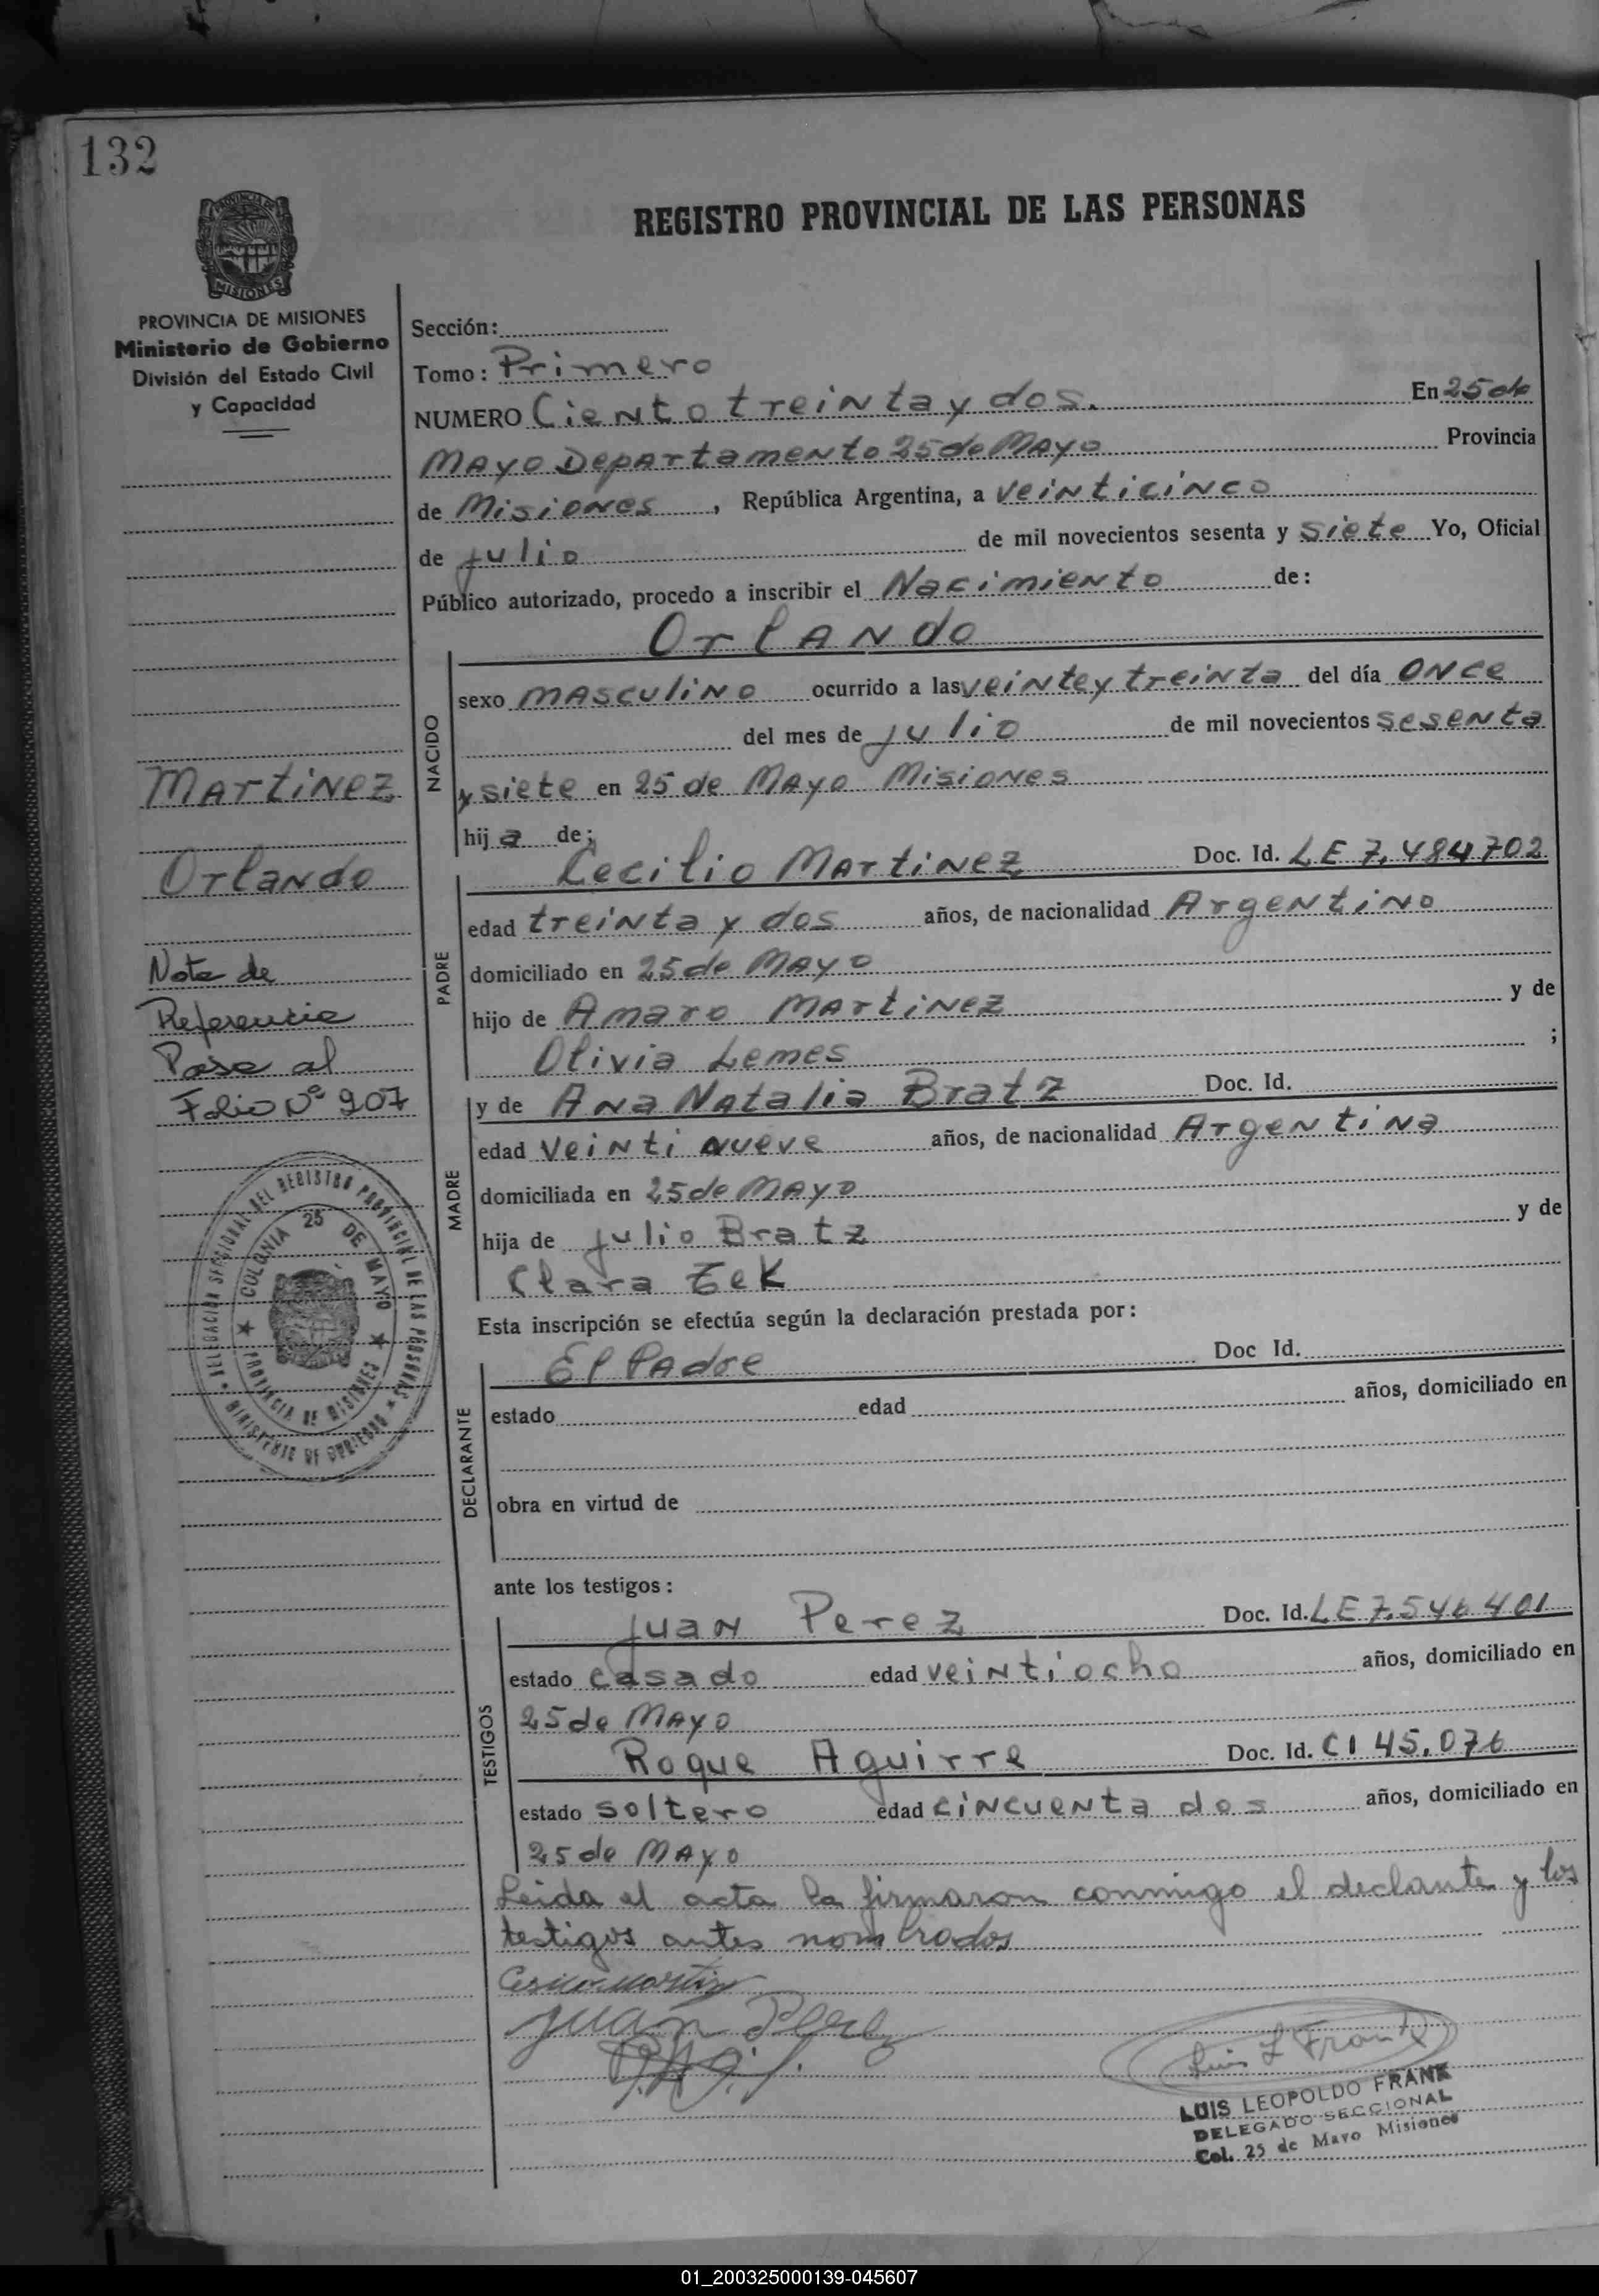 132
REGISTRO PROVINCIAL DE LAS PERSONAS
PROVINCIA DE
MISIONES
PROVINCIA DE MISIONES
Ministerio de Gobierno
División del Estado Civil
y Capacidad
Sección:
Tomo: Primero
NUMERO Ciento treinta y dos. En 25 de
Mayo Departamento 25 de Mayo Provincia
de Misiones, República Argentina, a veinticinco
de julio de mil novecientos sesenta y siete Yo, Oficial
Público autorizado, procedo a inscribir el Nacimiento de:
Orlando
NACIDO
sexo masculino ocurrido a las veinte y treinta del día once
del mes de julio de mil novecientos sesenta
y siete en 25 de Mayo Misiones
hija de;
Martinez
Orlando
Nota de
Referencia
Pasa al
Folio Nº 207
PADRE
Cecilio Martinez Doc. Id. LE 7.484702
edad treinta y dos años, de nacionalidad Argentino
domiciliado en 25 de Mayo
hijo de Amaro Martinez y de
Olivia Lemes ;
MADRE
y de Ana Natalia Bratz Doc. Id.
edad veinti nueve años, de nacionalidad Argentina
domiciliada en 25 de Mayo
hija de Julio Bratz y de
Clara
DELEGACIÓN SECCIONAL DEL REGISTRO PROVINCIAL DE LAS PERSONAS
MINISTERIO DE GOBIERNO
COLONIA 25 DE MAYO
PROVINCIA DE MISIONES
Esta inscripción se efectúa según la declaración prestada por:
DECLARANTE
El Padre Doc Id.
estado edad años, domiciliado en
obra en virtud de
ante los testigos:
TESTIGOS
Juan Perez Doc. Id. LE 7.546401
estado casado edad veintiocho años, domiciliado en
25 de Mayo
Roque Aguirre Doc. Id. CI 45.076
estado soltero edad cincuenta dos años, domiciliado en
25 de Mayo
Leida el acta la firmaron conmigo el declante y los
testigos antes nombrados
Juan Perez
Luis L Frank
LUIS LEOPOLDO FRANK
DELEGADO SECCIONAL
Col. 25 de Mayo Misiones
01_200325000139-045607